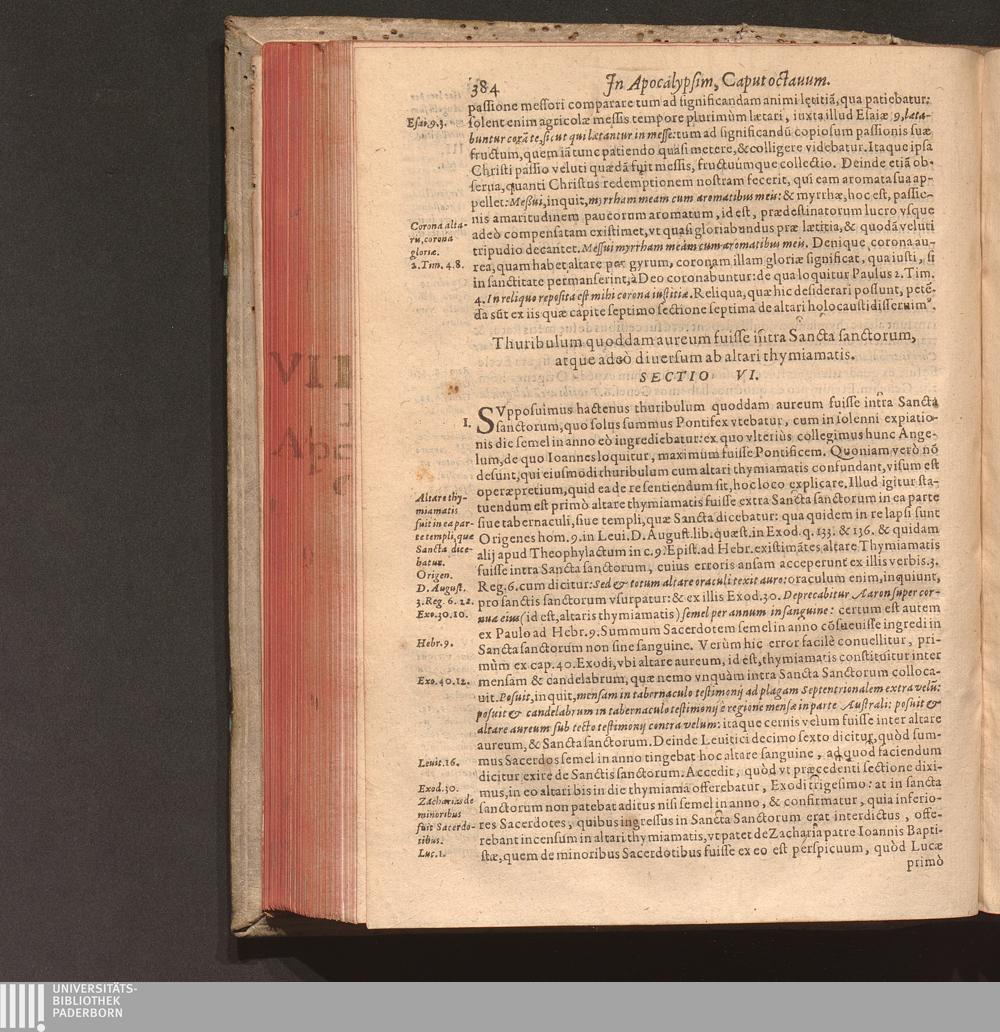 384
In Apocalypsim, Caput octauum.
passione messori comparare tum ad significandam animi lętitiã, qua patiebatur:
solent enim agricolæ messis tempore plurimùm lætari, iuxta illud Esaiæ 9, læta-
buntur corã te, sicut qui lætantur in messe: tum ad significandũ copiosum passionis suæ
fructum, quem iã tunc patiendo quasi metere, & colligere videbatur. Itaque ipsa
Christi passio veluti quædã fuit messis, fructuúmque collectio. Deinde etiã ob-
serua, quanti Christus redemptionem nostram fecerit, qui eam aromata sua ap-
pellet: Messui, inquit, myrrham meam cum aromatibus meis: & myrrhæ, hoc est, passio-
nis amaritudinem paucorum aromatum, id est, prædestinatorum lucro vsque
adeò compensatam existimet, vt quasi gloriabundus præ lætitia, & quodã veluti
tripudio decantet. Messui myrrham meam cum aromatibus meis. Denique corona au-
rea, quam habet altare per gyrum, coronam illam gloriæ significat, qua iusti, si
in sanctitate permanserint, à Deo coronabuntur: de qua loquitur Paulus 2. Tim.
4. In reliquo reposita est mihi corona iustitiæ. Reliqua, quæ hic desiderari possunt, petẽ-
da sũt ex iis quæ capite septimo sectione septima de altari holocausti disseruimꝰ.
Esai. 9. 3.
Corona alta-
ris, corona
gloriæ.
2. Tim. 4. 8.
Thuribulum quoddam aureum fuisse intra Sancta sanctorum,
atque adeò diuersum ab altari thymiamatis.
SECTIO VI.
I.
SVpposuimus hactenus thuribulum quoddam aureum fuisse intra Sancta
sanctorum, quo solus summus Pontifex vtebatur, cum in solenni expiatio-
nis die semel in anno eò ingrediebatur: ex quo vlteriùs collegimus hunc Ange-
lum, de quo Ioannes loquitur, maximum fuisse Pontificem. Quoniam verò nõ
desunt, qui eiusmodi thuribulum cum altari thymiamatis confundant, visum est
operæpretium, quid ea de re sentiendum sit, hoc loco explicare. Illud igitur sta-
tuendum est primò altare thymiamatis fuisse extra Sancta sanctorum in ea parte
siue tabernaculi, siue templi, quæ Sancta dicebatur: qua quidem in re lapsi sunt
Origenes hom. 9. in Leui. D. August. lib. quæst. in Exod. q. 133. & 136. & quidam
alij apud Theophylactum in c. 9. Epist. ad Hebr. existimãtes altare Thymiamatis
fuisse intra Sancta sanctorum, cuius erroris ansam acceperunt ex illis verbis. 3.
Reg. 6. cum dicitur: Sed & totum altare oraculi texit auro: oraculum enim, inquiunt,
pro sanctis sanctorum vsurpatur: & ex illis Exod. 30. Deprecabitur Aaron super cor-
nua eius (id est, altaris thymiamatis) semel per annum in sanguine: certum est autem
ex Paulo ad Hebr. 9. Summum Sacerdotem semel in anno cõsueuisse ingredi in
Sancta sanctorum non sine sanguine. Verùm hic error facilè conuellitur, pri-
mùm ex cap. 40. Exodi, vbi altare aureum, id est, thymiamatis constituitur inter
mensam & candelabrum, quæ nemo vnquàm intra Sancta Sanctorum colloca-
uit. Posuit, inquit, mensam in tabernaculo testimonij ad plagam Septentrionalem extra velũ:
posuit & candelabrum in tabernaculo testimonij è regione mensæ in parte Australi: posuit &
altare aureum sub tecto testimonij contra velum: itaque cernis velum fuisse inter altare
aureum, & Sancta sanctorum. Deinde Leuitici decimo sexto dicitur, quòd sum-
mus Sacerdos semel in anno tingebat hoc altare sanguine, ad quod faciendum
dicitur exire de Sanctis sanctorum. Accedit, quòd vt præcedenti sectione dixi-
mus, in eo altari bis in die thymiama offerebatur, Exodi trigesimo: at in sancta
sanctorum non patebat aditus nisi semel in anno, & confirmatur, quia inferio-
res Sacerdotes, quibus ingressus in Sancta Sanctorum erat interdictus, offe-
rebant incensum in altari thymiamatis, vt patet de Zacharia patre Ioannis Bapti-
stæ, quem de minoribus Sacerdotibus fuisse ex eo est perspicuum, quòd Lucæ
primò
Altare thy-
miamatis
fuit in ea par-
te templi, quæ
Sancta dice-
batur.
Origen.
D. August.
3. Reg. 6. 22.
Exo. 30. 10.
Hebr. 9.
Exo. 40. 12.
Leuit. 16.
Exod. 30.
Zacharias de
minoribus
fuit Sacerdo-
tibus.
Luc. 1.
UNIVERSITÄTS-
BIBLIOTHEK
PADERBORN